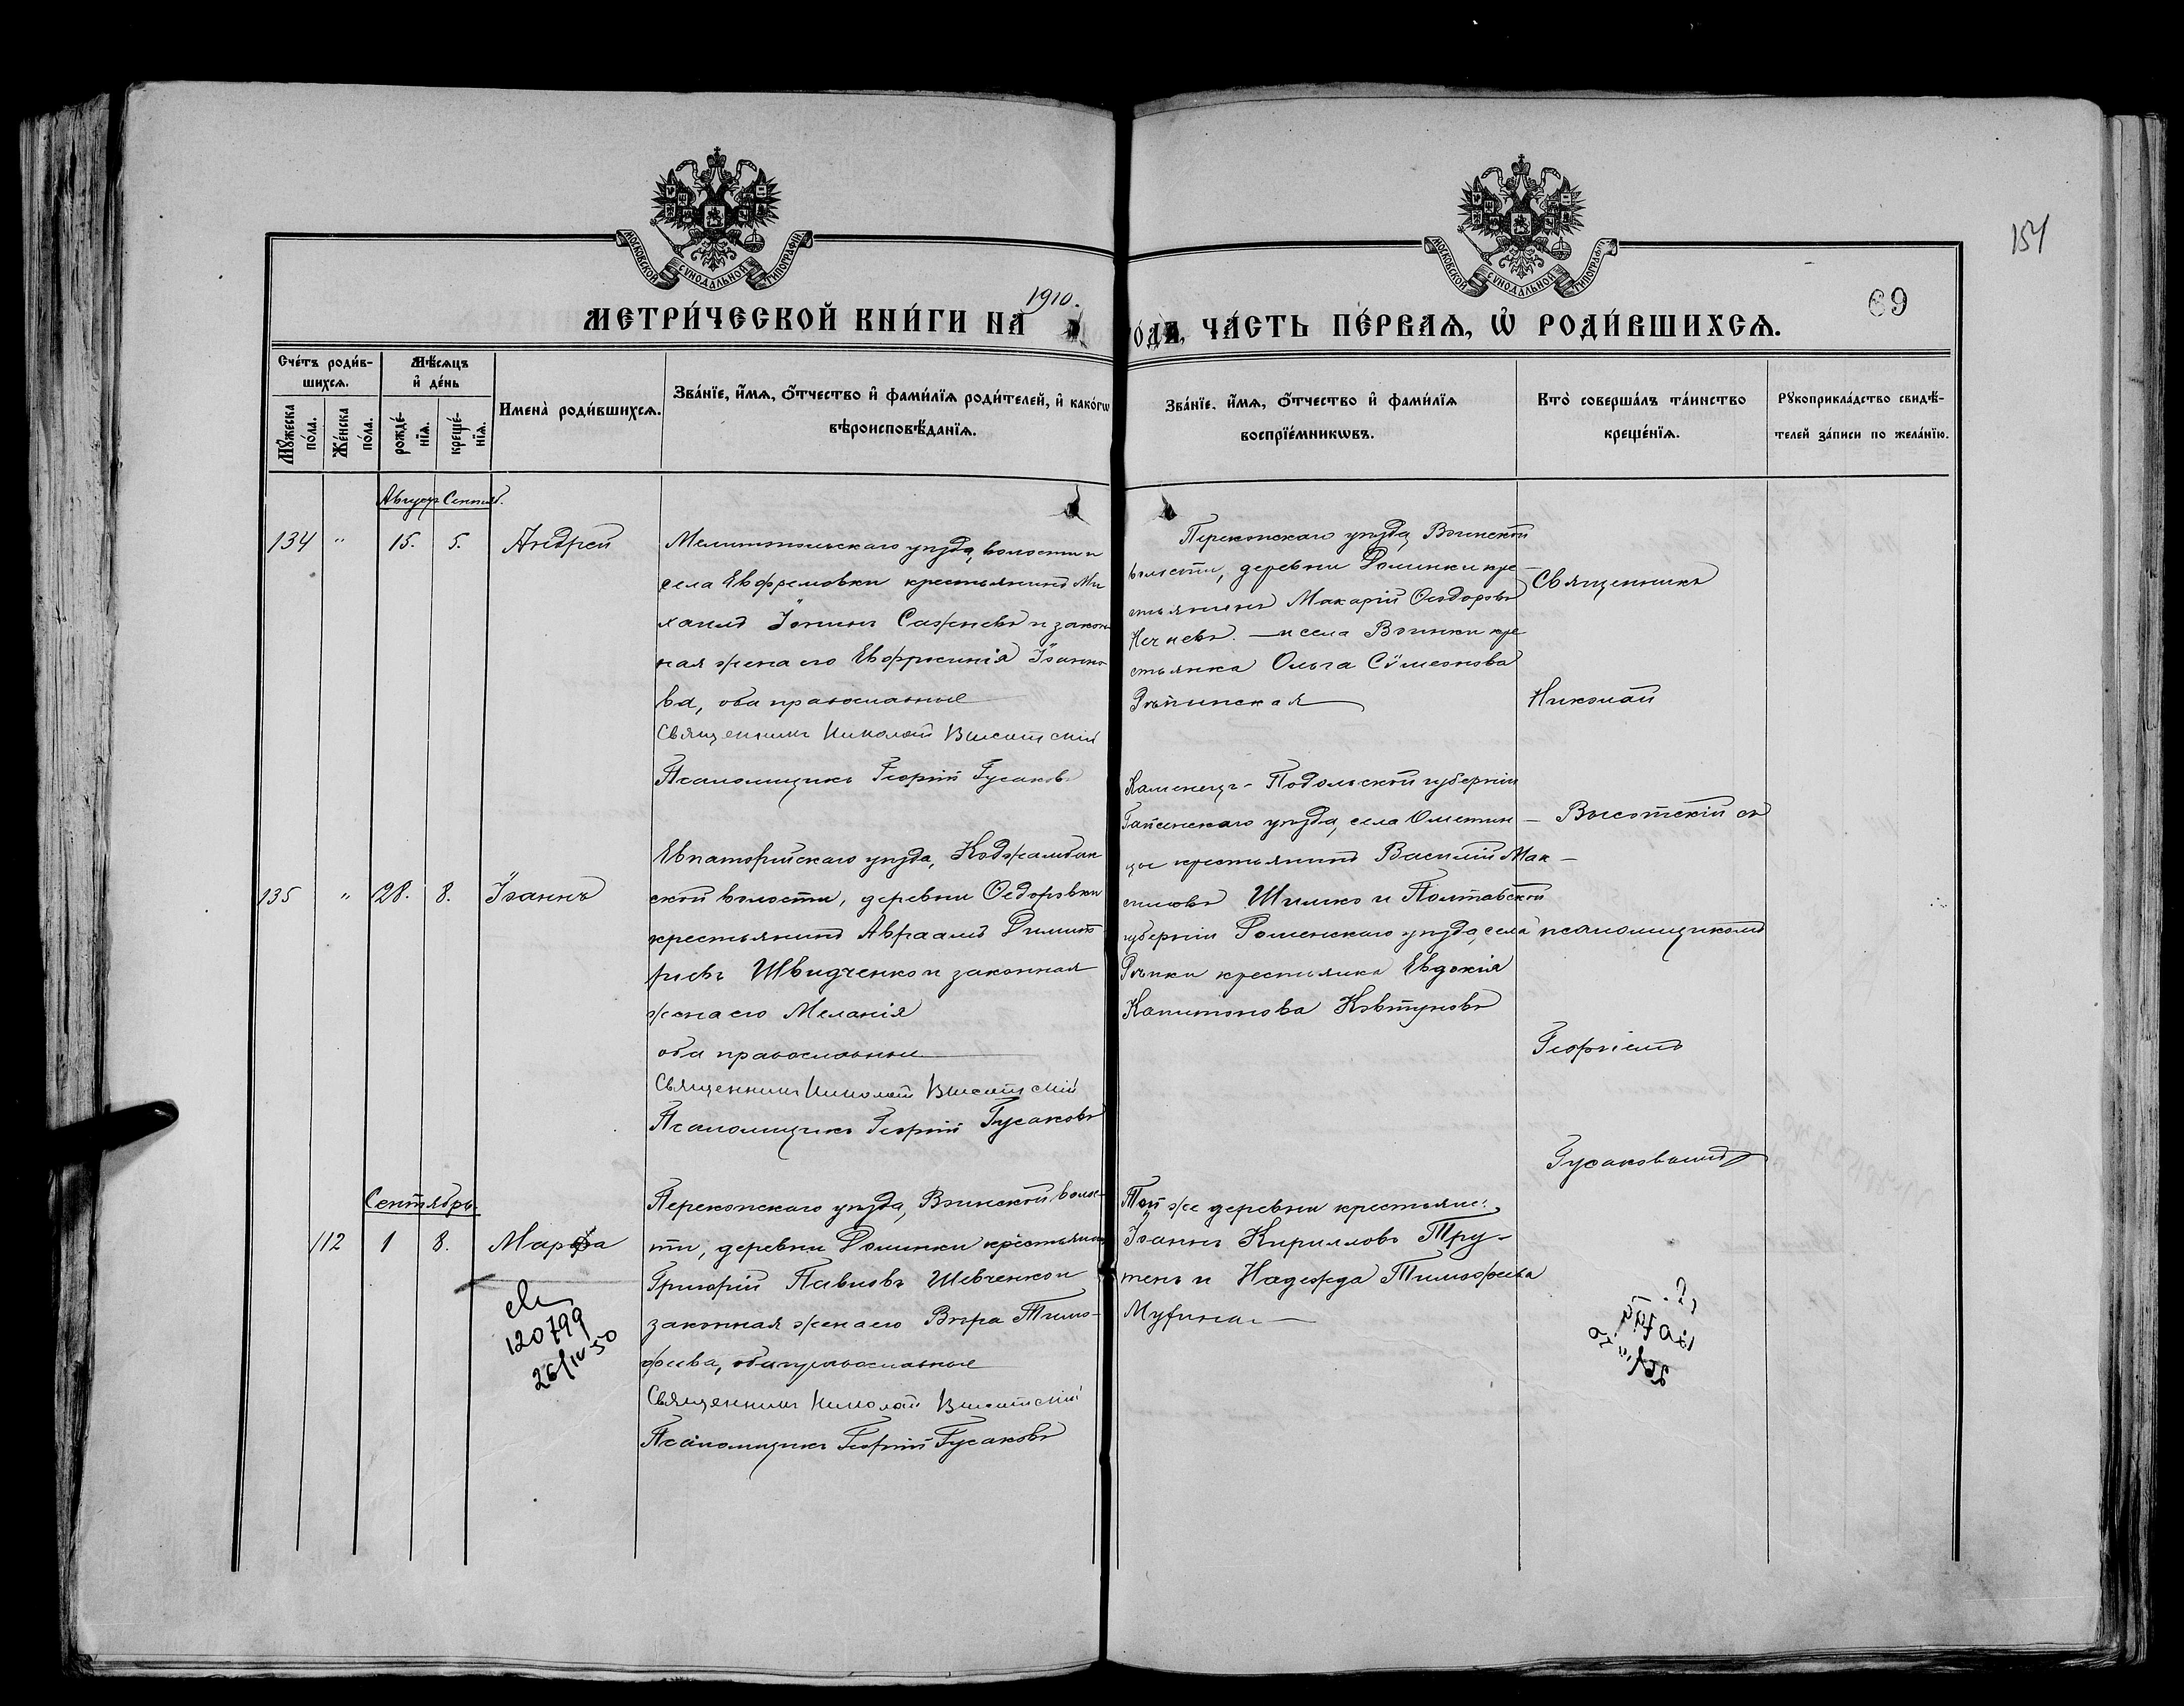 154
МОСКОВСКОЙ СУНОДАЛЬНОЙ ТИПОГРАФІИ
МОСКОВСКОЙ СУНОДАЛЬНОЙ ТИПОГРАФІИ
1910.
69
МЕТРИ́ЧЕСКОЙ КНИ́ГИ НА
го́да, ЧА́СТЬ ПЕ́РВАѦ, Ѡ РОДИ́ВШИХСѦ.
Сче́тъ роди́в-
шихсѧ.
Мѣ́сѧцъ
и҆ де́нь
Мꙋжеска по́ла.
Же́нска по́ла.
рожде́-
нїѧ.
креще́-
нїѧ.
Имена̀ роди́вшихсѧ.
Зва́нїе, и҆́мѧ, ѻ҆́тчество и҆ фами́лїѧ роди́телей, и҆ како́гѡ
вѣроисповѣ́данїѧ.
Зва́нїе, и҆́мѧ, ѻ҆́тчество и҆ фами́лїѧ
воспрїе́мникѡвъ.
Кто̀ соверша́лъ та́инство
креще́нїѧ.
Рꙋкоприкла́дство свидѣ́-
телей за́писи по жела́нїю.
Август Сентяб.
134 " 15. 5. Андрей
Мелитопольскаго уѣзда, волости и
села Ефремовки крестьянинъ Ми
хаилъ Іонинъ и закон
ная жена его Евфросинія Іоанно
ва, оба православные
Священникъ Николай Высотскій
Псаломщикъ Георгій Гусаковъ
Перекопскаго уѣзда, Воинской
волости, деревни кре-
стьянинъ Макарій Ѳеодоровъ
и села Воинки кре
стьянка Ольга Сѵмеонова
Священникъ
Николай
Высотскій съ
псаломщикомъ
Георгіемъ
Гусаковымъ
135 " 28. 8. Іоаннъ
Евпаторійскаго уѣзда, Коджамбак
ской волости, деревни Ѳедоровки
крестьянинъ Авраамъ Димит
ріевъ Швидченко и законная
жена его Меланія
оба православные
Священникъ Николай Высотскій
Псаломщикъ Георгій Гусаковъ
Каменецъ-Подольской губерніи
Гайсинскаго уѣзда, села Ометин-
цы крестьянинъ Василій Мак-
симовъ Шимко и Полтавской
губерніи Роменскаго уѣзда, села
крестьянка Евдокія
Капитонова
Сентябрь
112 1 8. Марфа
120799
26/IV 50
Перекопскаго уѣзда, Воинской волос-
ти, деревни крестьянинъ
Григорій Павловъ Шевченко и
законная жена его Вѣра Тимо-
феева, оба православные
Священникъ Николай Высотскій
Псаломщикъ Георгій Гусаковъ
Той же деревни крестьяне:
Іоаннъ Кирилловъ Тру-
тень и Надежда Тимофеева